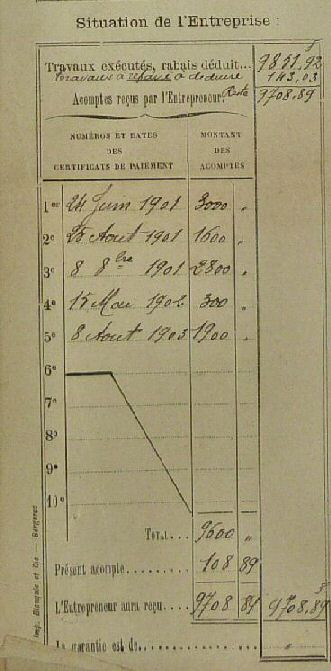 Situation de l'Entreprise :
Travaux exécutés, rabais déduit... 9851,92
Travaux à refaire à déduire 143,03
Acomptes reçus par l'Entrepreneur. Reste 9708.89
NUMÉROS ET DATES DES CERTIFICATS DE PAIEMENT
MONTANT DES ACOMPTES
1er 24 Juin 1901 3000 "
2e 25 Aout 1901 1600 "
3e 8 8bre 1901 2800 "
4e 15 Mai 1902 300 "
5e 8 Aout 1903 1900 "
6e
7e
8e
9e
10e
TOTAL... 9600 "
Présent acompte......... 108 89
L'Entrepreneur aura reçu.... 9708 89 9708.89
La garantie est de............ "
Imp. et Cie Bergerac